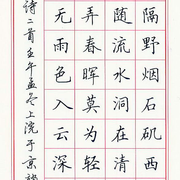 隔野烟石矶西
随流水洞在清
弄春晖莫为轻
无雨色入云深
诗二首壬午孟冬上浣于京